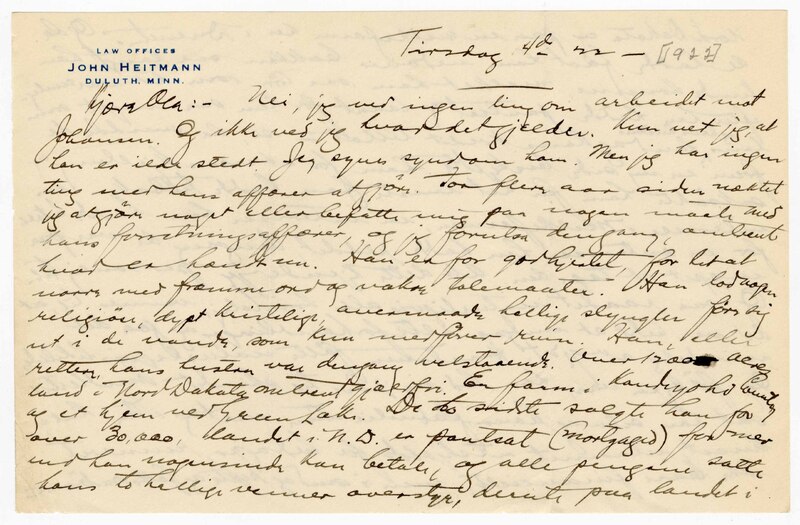 LAW OFFICES
JOHN HEITMANN
DULUTH, MINN.
Tirsdag 4de 22 — [1922]
Kjære Ola:- Nei, jeg ved ingen ting om arbeidet mot
Johansen. Og ikke ved jeg hvad det gjelder. Kun vet jeg at
han er ilde stedt. Jeg synes synd om ham. Men jeg har ingen
ting med hans affærer at gjøre. For flere aar siden nektet
jeg at gjøre noget eller befatte mig paa nogen maate med
hans forretningsaffærer, og jeg dengang, omtrent
hvad er hændt nu. Han er for godhjertet, for let at
narre med fromme ord og vakre talemaater. Han lod nogen
religiøse, dypt kristelige, overmaade hellige slyngler føre sig
ut i de vande, som kun medfører ruin. Han, eller
rettere, hans hustru var dengang velstaaende. Over 1200 acres
land i Nord Dakota omtrent gjældfri. En farm i Kandiyohi County
og et hjem ved Green Lake. De to sidste solgte han for
over 30,000, landet i N.D. er pantsat (mortgaged) for mer
end han nogensinde kan betale, og alle pengene satte
hans to hellige venner overstyr, derute paa landet i